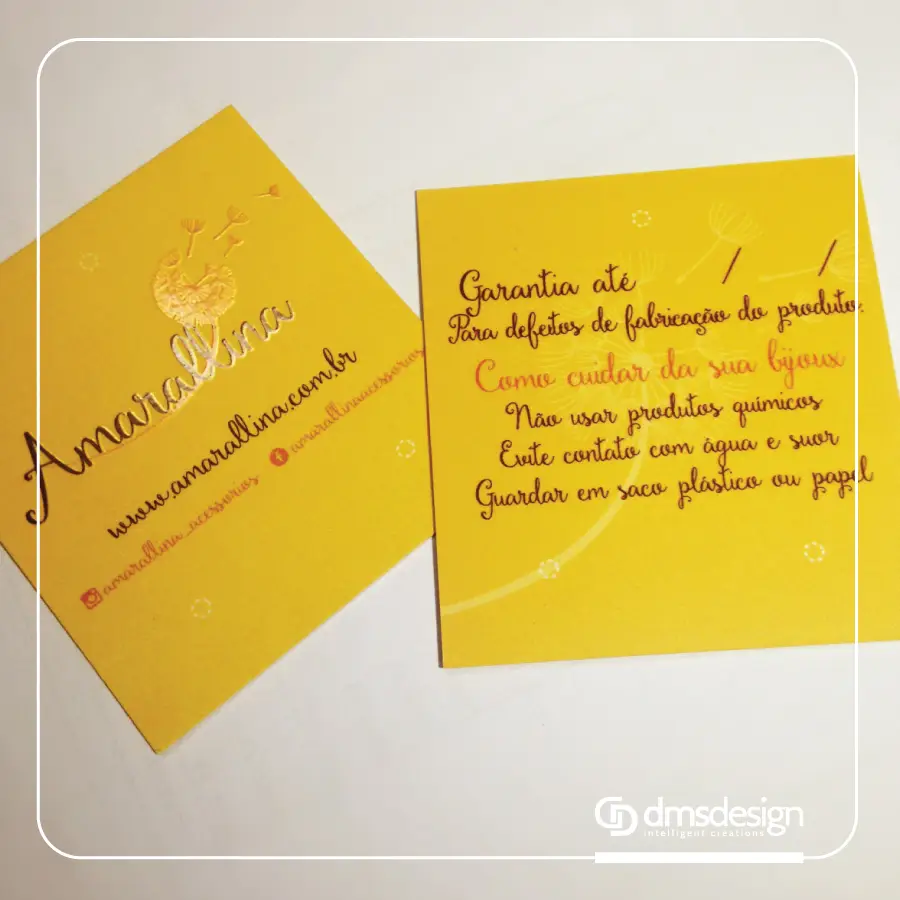 Amarallina
www.amarallina.com.br
amarallina_acessorios
amarallinaacessorios
Garantia até / /
Para defeitos de fabricação do produto.
Como cuidar da sua bijoux
Não usar produtos químicos
Evite contato com água e suor
Guardar em saco plástico ou papel
dmsdesign
intelligent creations